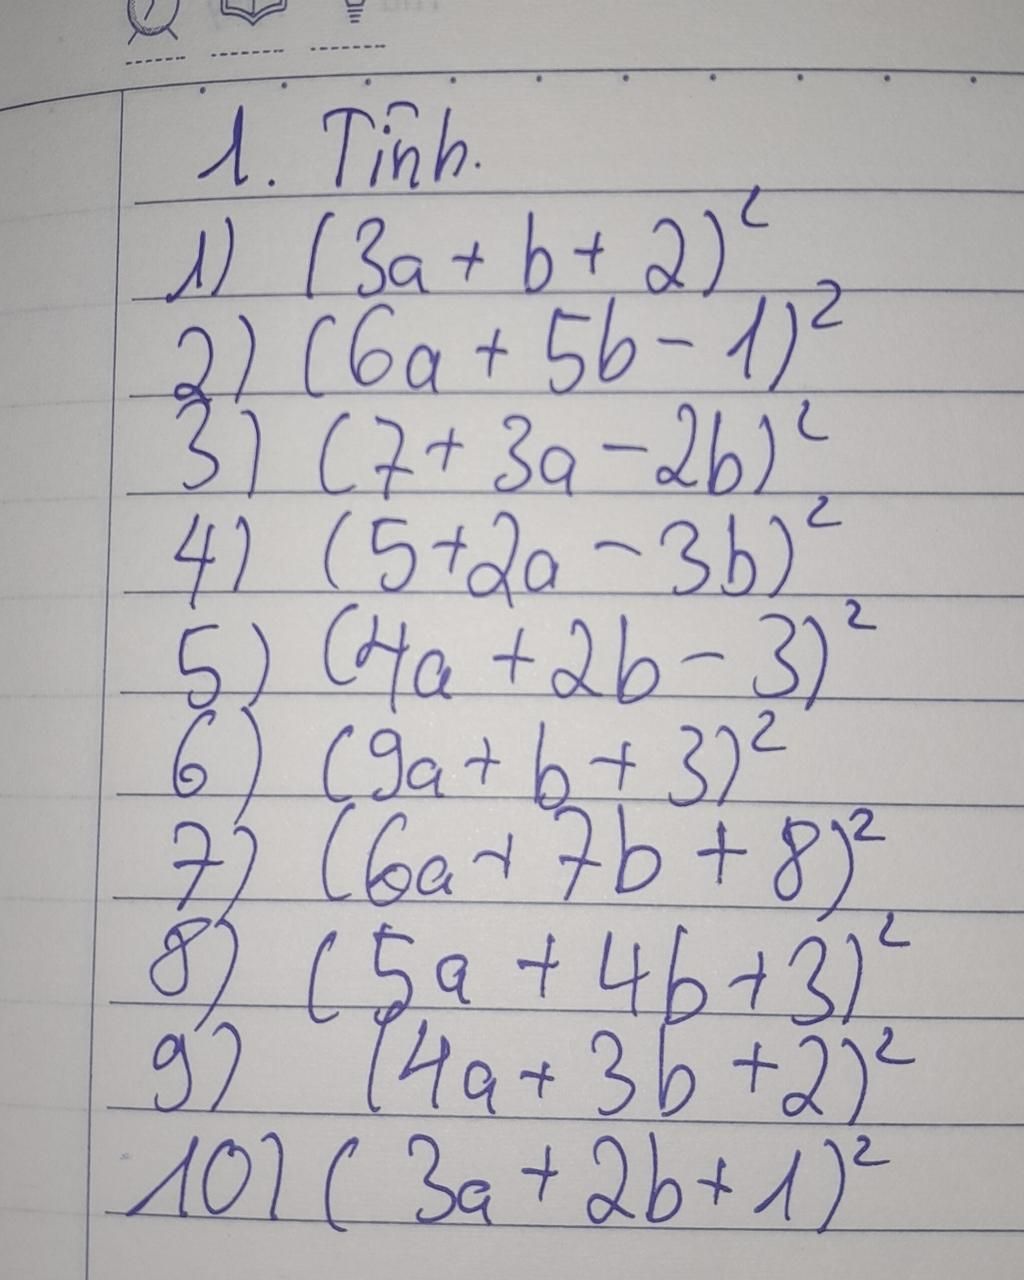 1. Tính.
1) (3a + b + 2)²
2) (6a + 5b - 1)²
3) (7 + 3a - 2b)²
4) (5 + 2a - 3b)²
5) (4a + 2b - 3)²
6) (9a + b + 3)²
7) (6a + 7b + 8)²
8) (5a + 4b + 3)²
9) (4a + 3b + 2)²
10) (3a + 2b + 1)²